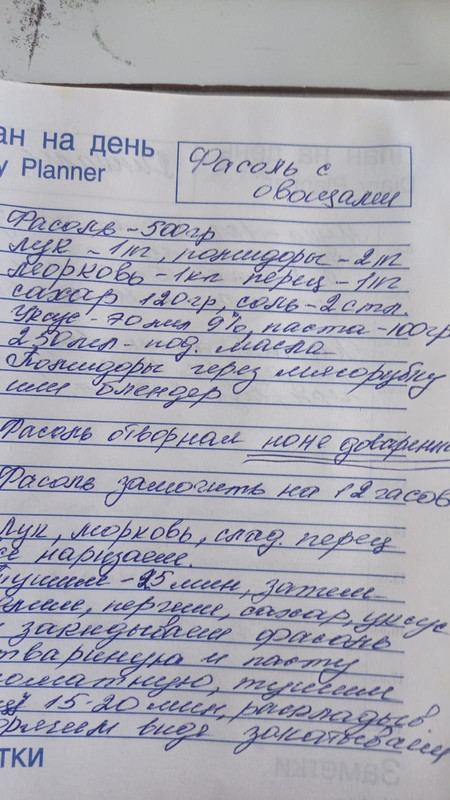 ан на день
y Planner
Фасоль с
овощами
Фасоль - 500гр
лук - 1кг, помидоры - 2кг
морковь - 1кг перец - 1кг
сахар 120гр, соль - 2 ст.л.
Уксус - 70мл 9%, паста - 100гр
250мл - под. масла
Помидоры через мясорубку
или блендер
Фасоль отворная но не доваренн
Фасоль замочить на 12 часов
Лук, морковь, слад. перец
все нарезаем.
Тушим - 25 мин, затем
солим, перчим, сахар, уксус
и закидываем фасоль
отваринную и пасту
томатную, тушим
15-20 мин, расклад
горячем виде закатываем
тки